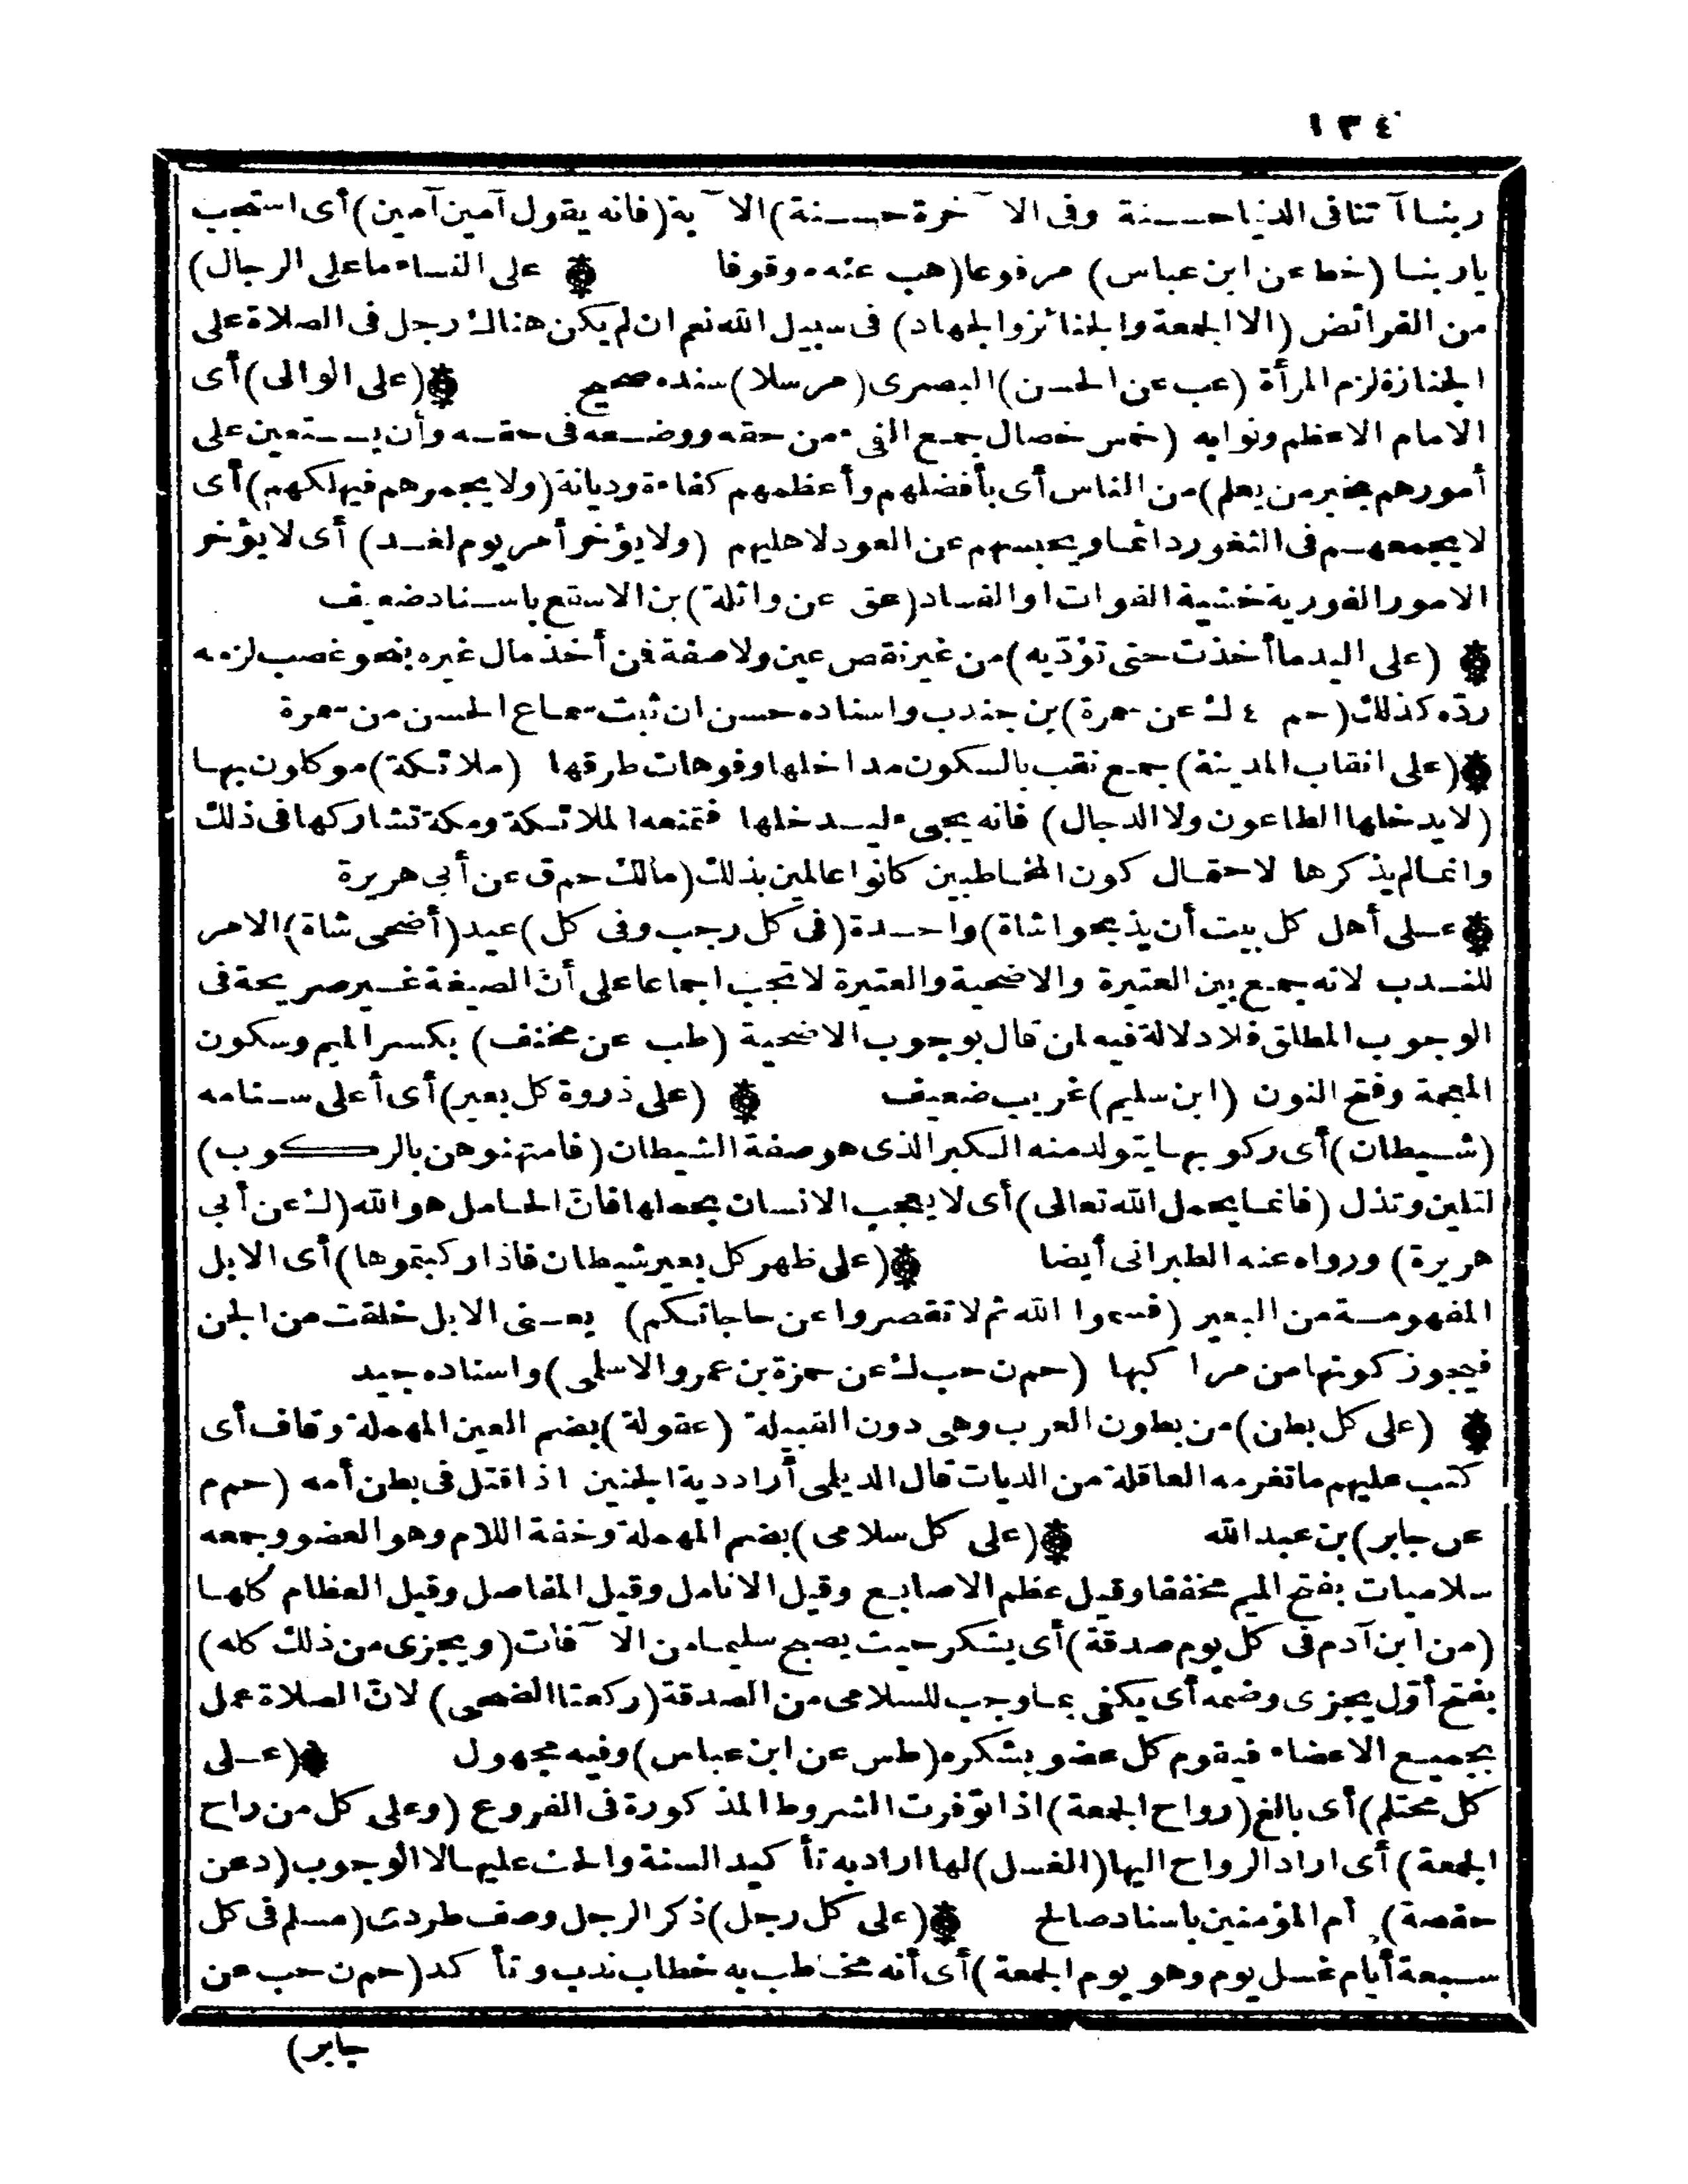 ١٣٤
ربنا آتنا فى الدنيا حسنة وفى الآخرة حسنة) الآية (فانه يقول آمين آمين) أى استجب
يا ربنا (خط عن ابن عباس) مرفوعا (هب عنه موقوفا ۞ على النساء ما على الرجال)
من الفرائض (الا الجمعة والجنائز والجهاد) فى سبيل الله نعم ان لم يكن هناك رجل فى الصلاة على
الجنازة لزم المرأة (عب عن الحسن) البصرى (مرسلا) سنده صحيح ۞ (على الوالى) أى
الامام الاعظم ونوابه (خمس خصال جمع الفىء من حقه ووضعه فى حقه وأن يستعين على
أمورهم بخير من يعلم) من الناس أى بأفضلهم وأعظمهم كفاءة وديانة (ولا يجمرهم فيهلكهم) أى
لا يجمعهم فى الثغور دائما ويحبسهم عن العود لاهليهم (ولا يؤخر أمر يوم لغد) أى لا يؤخر
الامور الفورية خشية الفوات او الفساد (عق عن واثلة) بن الاسقع باسناد ضعيف
۞ (على اليد ما أخذت حتى تؤدّيه) من غير نقص عين ولا صفة فمن أخذ مال غيره بنحو غصب لزمه
ردّه كذلك (حم ٤ ك عن سمرة) بن جندب واسناده حسن ان ثبت سماع الحسن من سمرة
۞ (على انقاب المدينة) جمع نقب بالسكون مداخلها وفوهات طرقها (ملائكة) موكلون بها
(لا يدخلها الطاعون ولا الدجال) فانه يجىء ليدخلها فتمنعه الملائكة ومكة تشاركها فى ذلك
وانما لم يذكرها لاحتمال كون المخاطبين كانوا عالمين بذلك (مالك حم ق عن أبى هريرة
۞ على أهل كل بيت أن يذبحوا شاة) واحدة (فى كل رجب وفى كل) عيد (أضحى شاة) الامر
للندب لانه جمع بين العتيرة والاضحية والعتيرة لا تجب اجماعا على أنّ الصيغة غير صريحة فى
الوجوب المطلق فلا دلالة فيه لمن قال بوجوب الاضحية (طب عن مخنف) بكسر الميم وسكون
المعجمة وفتح النون (ابن سليم) غريب ضعيف ۞ (على ذروة كل بعير) أى أعلى سنامه
(شيطان) أى ركوبها يتولد منه الكبر الذى هو صفة الشيطان (فامتهنوهن بالركوب)
لتلين وتذل (فانما يحمل الله تعالى) أى لا يعجب الانسان بحملها فانّ الحامل هو الله (ك عن أبى
هريرة) ورواه عنه الطبرانى أيضا ۞ (على ظهر كل بعير شيطان فاذا ركبتموها) أى الابل
المفهومة من البعير (فسموا الله ثم لا تقصروا عن حاجاتكم) يعنى الابل خلقت من الجن
فيجوز كونها من مراكبها (حم ن حب ك عن حمزة بن عمرو الاسلمى) واسناده جيد
۞ (على كل بطن) من بطون العرب وهى دون القبيلة (عقولة) بضم العين المهملة وقاف أى
كتب عليهم ما تغرمه العاقلة من الديات قال الديلمى أراد دية الجنين اذا قتل فى بطن أمه (حم م
عن جابر) بن عبد الله ۞ (على كل سلامى) بضم المهملة وخفة اللام وهو العضو وجمعه
سلاميات بفتح الميم مخففا وقيل عظم الاصابع وقيل الانامل وقيل المفاصل وقيل العظام كلها
(من ابن آدم فى كل يوم صدقة) أى يشكر حيث يصبح سليما من الآفات (ويجزى من ذلك كله)
بفتح أوّل يجزى وضمه أى يكفى مما وجب للسلامى من الصدقة (ركعتا الضحى) لانّ الصلاة عمل
بجميع الاعضاء فيقوم كل عضو بشكره (طس عن ابن عباس) وفيه مجهول ۞ (على
كل محتلم) أى بالغ (رواح الجمعة) اذا توّفرت الشروط المذكورة فى الفروع (وعلى كل من راح
الجمعة) أى اراد الرواح اليها (الغسل) لها اراد به تأكيد السنة والحث عليها لا الوجوب (د عن
حفصة) أم المؤمنين باسناد صالح ۞ (على كل رجل) ذكر الرجل وصف طردى (مسلم فى كل
سبعة أيام غسل يوم وهو يوم الجمعة) أى أنه مخاطب به خطاب ندب وتأكد (حم ن حب عن
جابر)